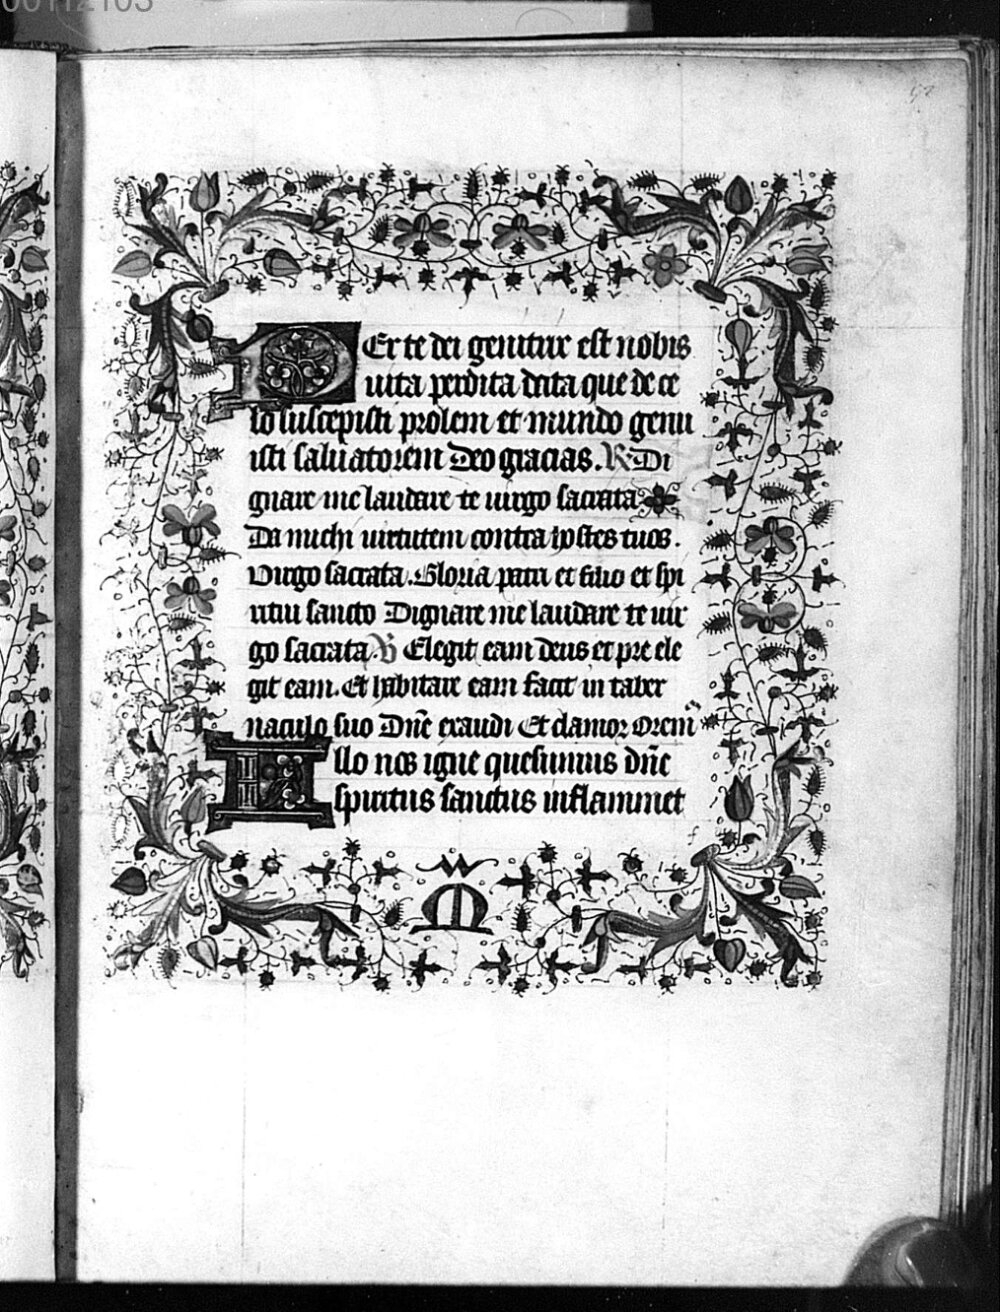 00112103
52
PEr te dei genitrix est nobis
uita perdita data que de ce
lo suscepisti prolem et mundo genu
isti saluatorem Deo gracias. R Di
gnare me laudare te uirgo sacrata
Da michi uirtutem contra hostes tuos.
Uirgo sacrata. Gloria patri et filio et spi
ritui sancto Dignare me laudare te uir
go sacrata. V Elegit eam deus et pre ele
git eam. Et habitare eam facit in taber
naculo suo Dn̄e exaudi Et clamor Orem̄
Illo nos igne quesumus dn̄e
spiritus sanctus inflammet
M